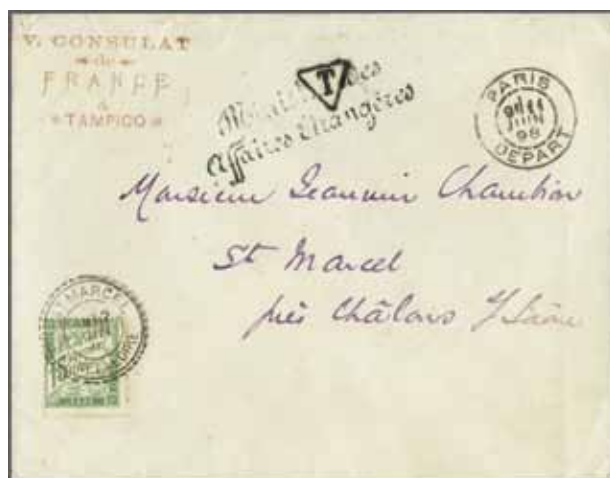 V. CONSULAT
de
FRANCE
à
TAMPICO
T
Ministère des
Affaires Etrangères
PARIS
JUIN
98
DEPART
Monsieur Jeannin Chambion
St Marcel
près Châlons s/Saône
MARCEL
15